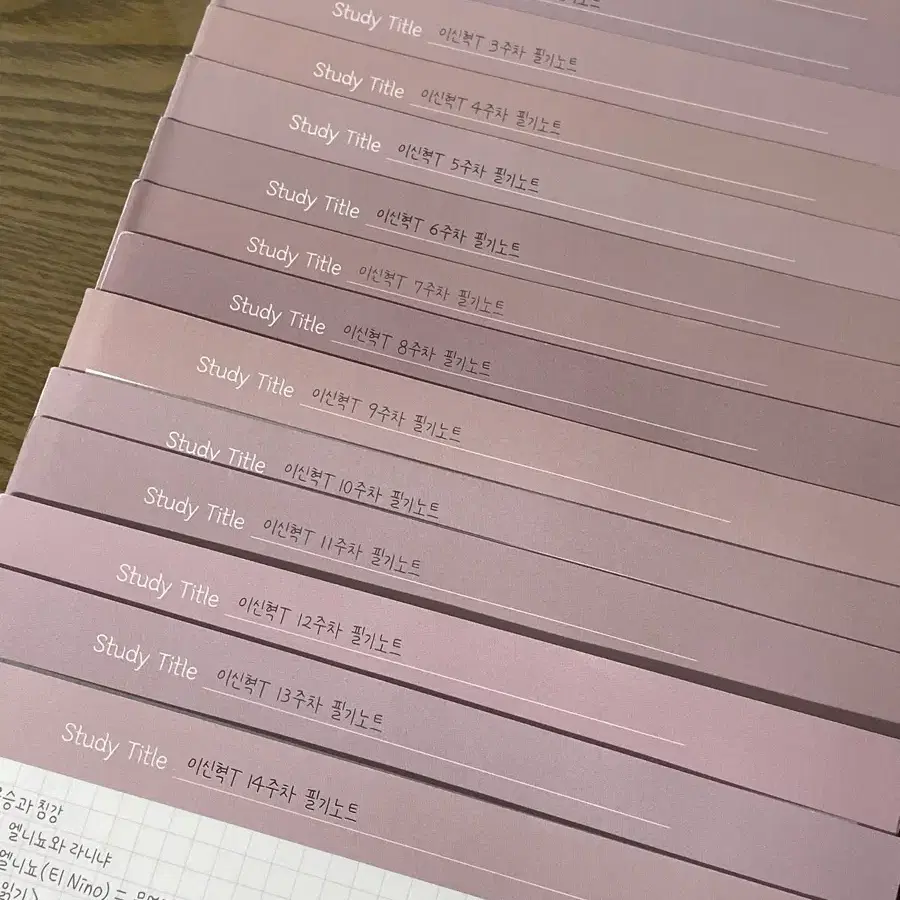 Study Title 이신혁T 3주차 필기노트
Study Title 이신혁T 4주차 필기노트
Study Title 이신혁T 5주차 필기노트
Study Title 이신혁T 6주차 필기노트
Study Title 이신혁T 7주차 필기노트
Study Title 이신혁T 8주차 필기노트
Study Title 이신혁T 9주차 필기노트
Study Title 이신혁T 10주차 필기노트
Study Title 이신혁T 11주차 필기노트
Study Title 이신혁T 12주차 필기노트
Study Title 이신혁T 13주차 필기노트
Study Title 이신혁T 14주차 필기노트
침강
엘니뇨와 라니냐
엘니뇨(El Nino) =